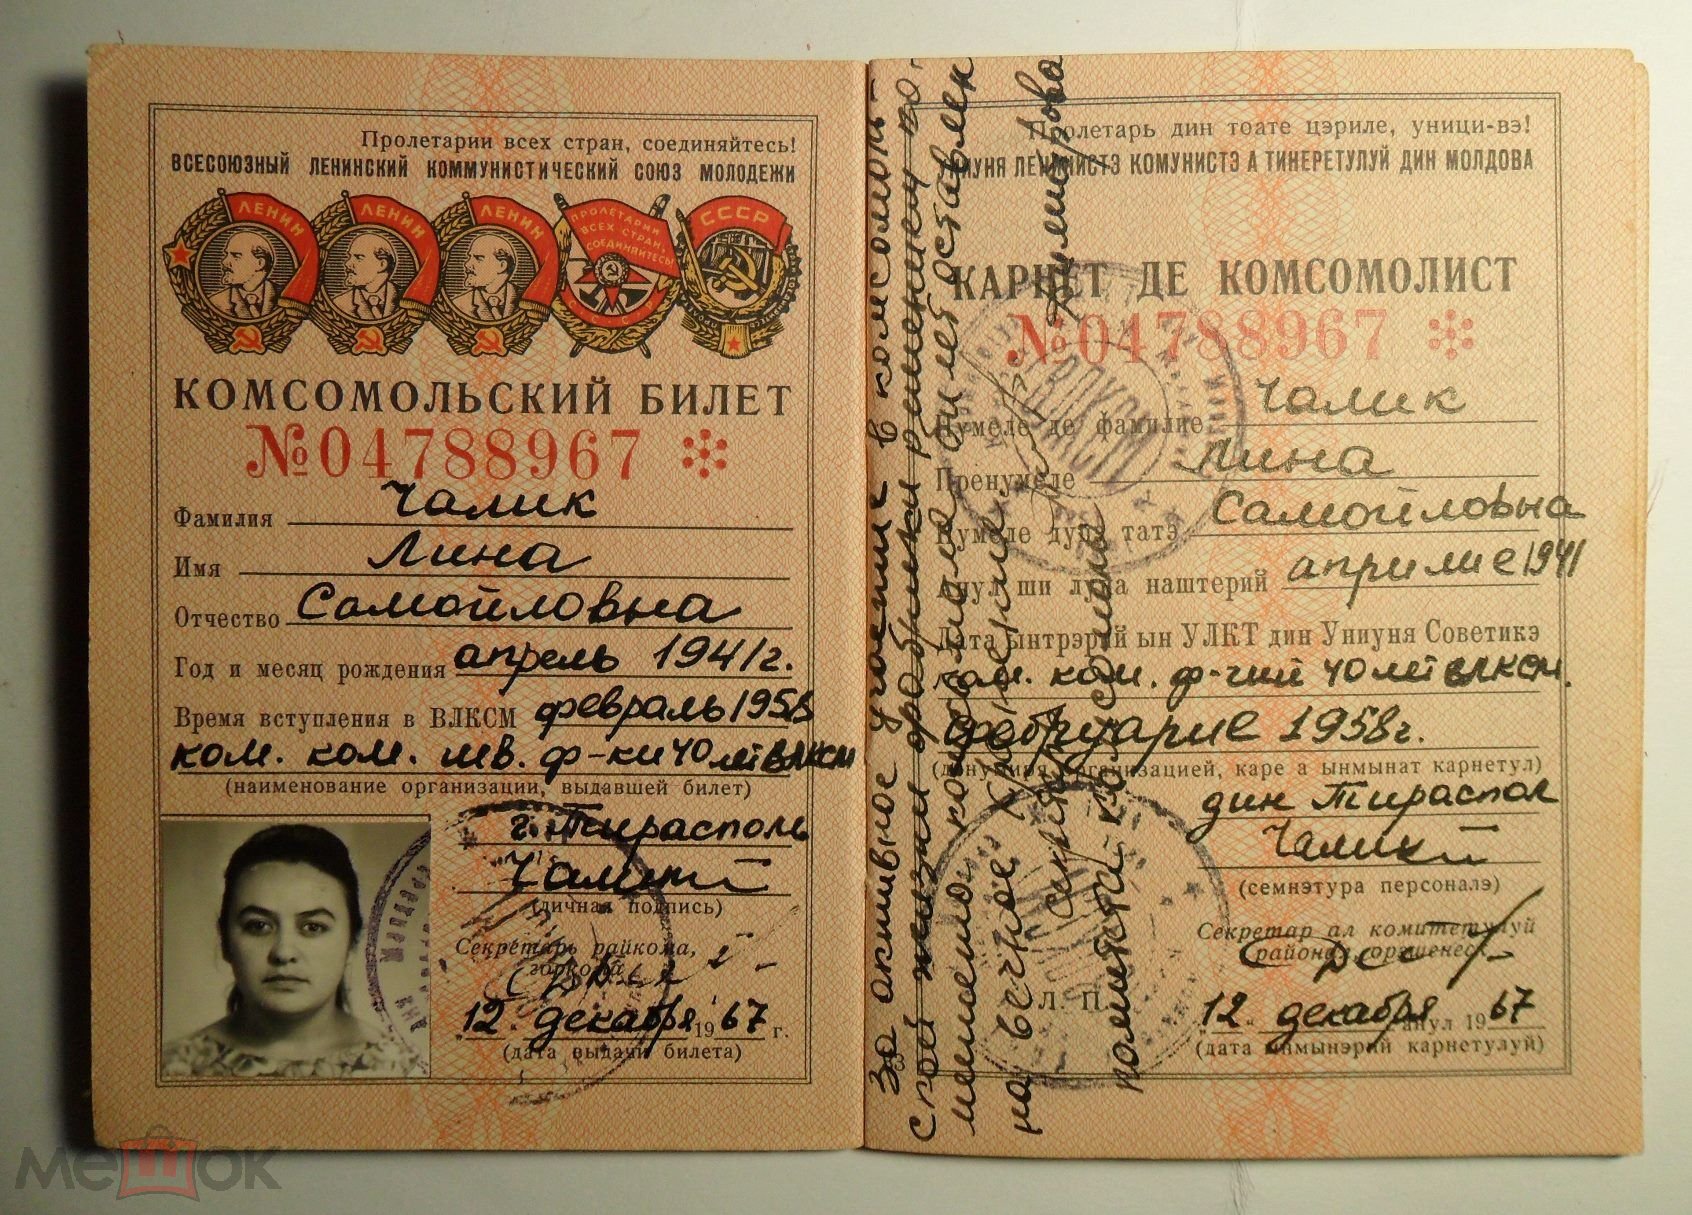 Пролетарии всех стран, соединяйтесь!
ВСЕСОЮЗНЫЙ ЛЕНИНСКИЙ КОММУНИСТИЧЕСКИЙ СОЮЗ МОЛОДЕЖИ
ЛЕНИН ЛЕНИН ЛЕНИН ПРОЛЕТАРИИ ВСЕХ СТРАН, СОЕДИНЯЙТЕСЬ! СССР
КОМСОМОЛЬСКИЙ БИЛЕТ
№04788967
Фамилия Чалик
Имя Лина
Отчество Самойловна
Год и месяц рождения апрель 1941г.
Время вступления в ВЛКСМ февраль 1958
ком. ком. шв. ф-ки 40 лет ВЛКСМ
(наименование организации, выдавшей билет)
г. Тирасполь
Чалик
(личная подпись)
Секретарь райкома,
горкома
12 декабря 1967 г.
(дата выдачи билета)
Пролетарь дин тоате цэриле, уници-вэ!
УНИУНЯ ЛЕНИНИСТЭ КОМУНИСТЭ А ТИНЕРЕТУЛУЙ ДИН МОЛДОВА
КАРНЕТ ДЕ КОМСОМОЛИСТ
№04788967
Нумеле де фамилие Чалик
Пренумеле Лина
Нумеле дупэ татэ Самойловна
Анул ши луна наштерий априлие 1941
Дата ынтрэрий ын УЛКТ дин Униуня Советикэ
ком. ком. ф-чий 40 лет ВЛКСМ.
фебруарие 1958г.
(денумиря организацией, каре а ынмынат карнетул)
дин Тираспол
Чалик
(семнэтура персоналэ)
Секретар ал комитетулуй
районал, орэшенеск
Л. П.
12 декабря анул 1967
(дата ынмынэрий карнетулуй)
За активное участие в комсомоль-
ской жизни фабрики решением ко-
митета комсомола билет оставлен
на вечное хранение.
Секретарь
комитета комсомола Димитрова
мешок